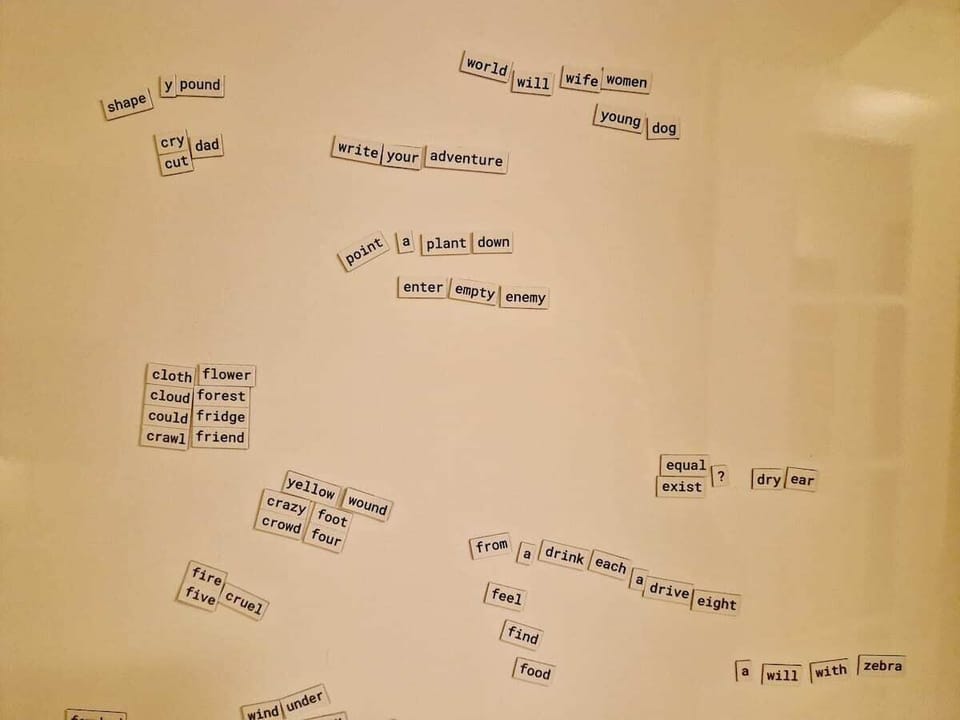 world will wife women
shape y pound
young dog
cry dad
cut
write your adventure
point a plant down
enter empty enemy
cloth flower
cloud forest
could fridge
crawl friend
equal ? dry ear
exist
yellow wound
crazy foot
crowd four
from a drink each a drive eight
fire
five cruel
feel
find
food
a will with zebra
wind under